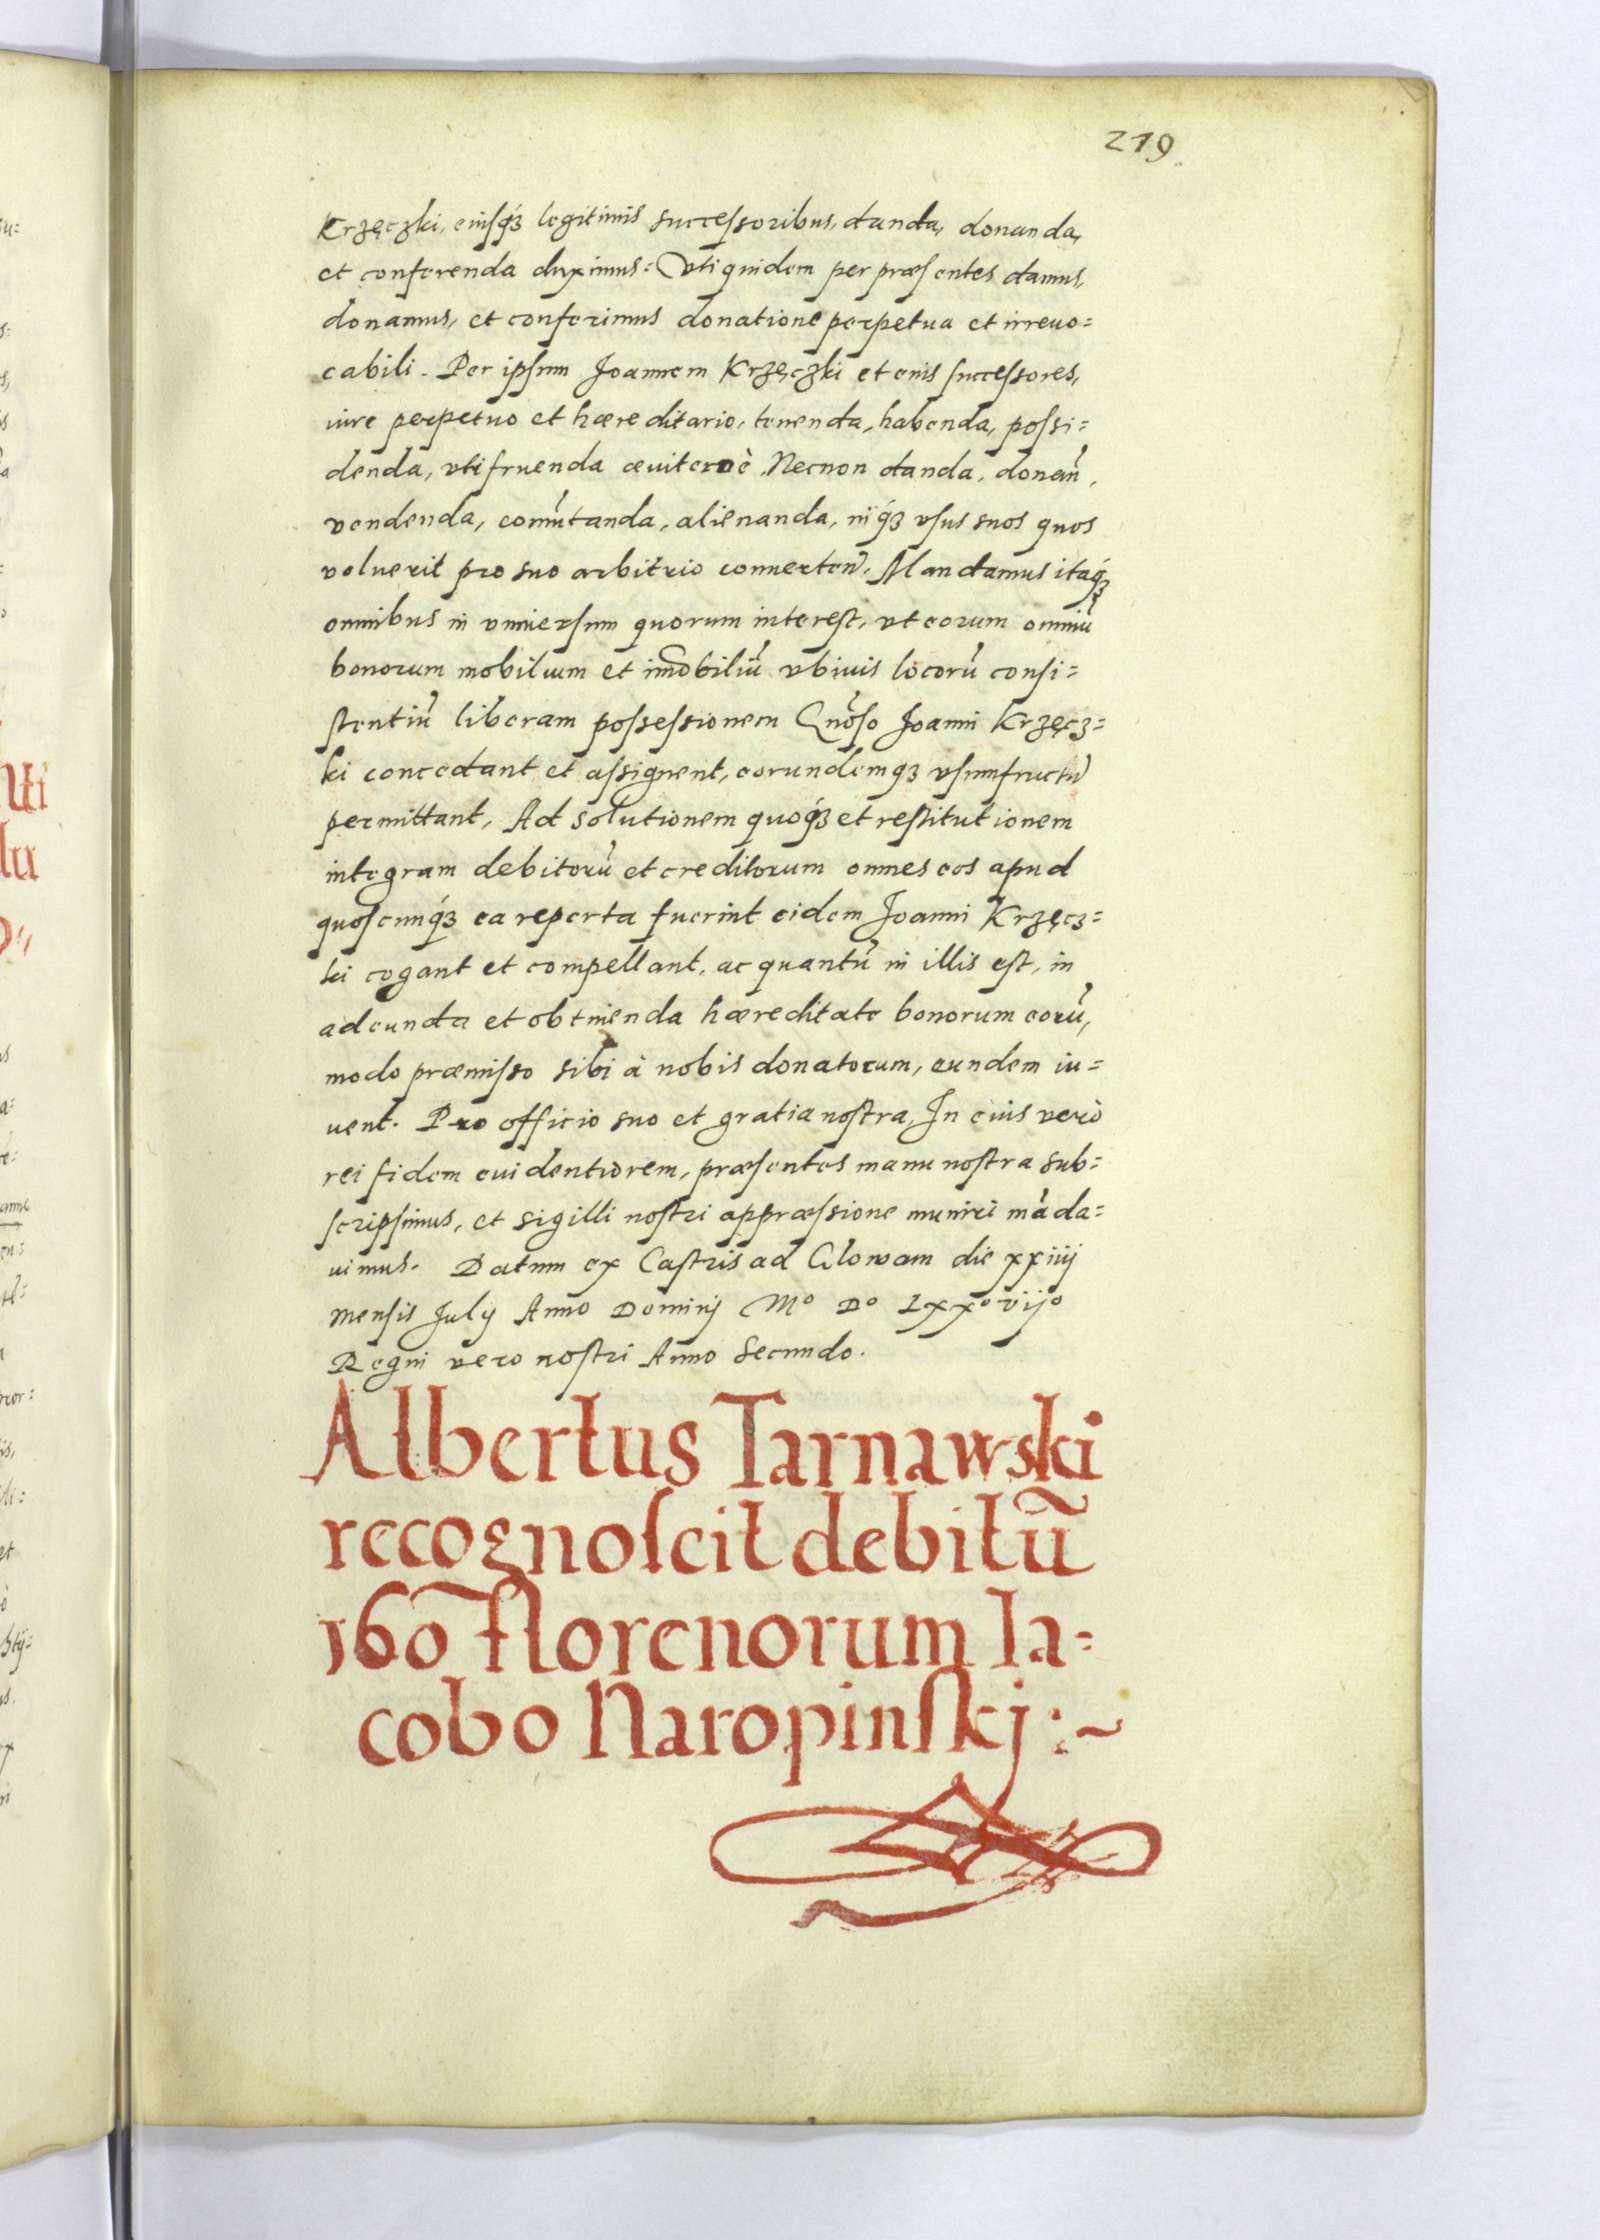 219
Krzęczki, eiusq́ȝ legitimis successoribus, danda, donanda,
et conferenda duximus: Vti quidem per præsentes damus,
donamus, et conferimus donatione perpetua et irreuo=
cabili. Per ipsum Joannem Krzęczki et euis successores,
iure perpetuo et hæreditario, tenenda, habenda, possi=
denda, vtifruenda æuiternè. Necnon danda, donan̄,
vendenda, com̄utanda, alienanda, inq́ȝ vsus suos quos
voluerit pro suo arbitrio conuerten̄. Mandamus itaq́ȝ
omnibus in vniuersum quorum interest, vt eorum omniū
bonorum mobilium et im̄obiliū vbiuis locorū consi=
stentiū liberam possessionem Joanni Krzęcz=
ki concedant et assignent, eorundemqȝ vsumfructū
permittant, Ad solutionem quoq́ȝ et restitutionem
integram debitorū et creditorum omnes eos apud
quoscunq́ȝ ea reperta fuerint eidem Joanni Krzęcz=
ki cogant et compellant, ac quantū in illis est, in
adeunda et obtinenda hæreditate bonorum eorū,
modo præmisso sibi à nobis donatorum, eundem iu=
uent. Pro officio suo et gratia nostra, In euis verò
rei fidem euidentiorem, præsentes manu nostra sub=
scripsimus, et sigilli nostri appræssione muniri māda=
uimus. Datum ex Castris ad Glowam die xxiiij
mensis July Anno Dominj Mº Dº Lxxº vijº
Regni vero nostri Anno Secundo.
Albertus Tarnawski
recognoscit debitū
160 florenorum Ia=
cobo Naropinskj :~